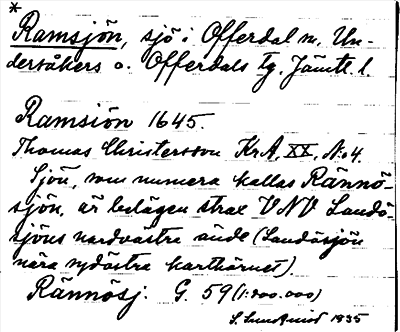 *
Ramsjön, sjö i Offerdal m. Un-
dersåkers o. Offerdals tg, Jämtl. l.
Ramsiön 1645.
Thomas Christersson KrA, XX, No 4.
Sjön, som numera kallas Rännö-
sjön, är belägen strax VNV Landö-
sjöns nordvästra ände (Landösjön
nära sydöstra karthörnet).
Rännösj. G. 59 (1:200.000)
S. Lundkvist 1935